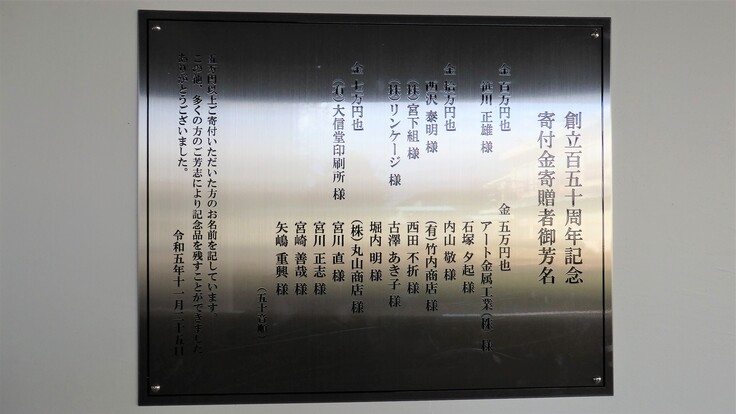 創立百五十周年記念
寄付金寄贈者御芳名
金 百万円也
笹川 正雄 様
金 拾万円也
西沢 泰明 様
(株)宮下組 様
(株)リンケージ 様
金 七万円也
(有)大信堂印刷所 様
金 五万円也
アート金属工業(株) 様
石塚 夕起 様
内山 敬 様
(有)竹内商店 様
西田 不折 様
古澤 あき子 様
堀内 明 様
(株)丸山商店 様
宮川 直 様
宮川 正志 様
宮崎 善哉 様
矢嶋 重興 様
(五十音順)
五万円以上ご寄付いただいた方のお名前を記しています。
この他、多くの方のご芳志により記念品を残すことができました。
ありがとうございました。
令和五年十一月二十五日